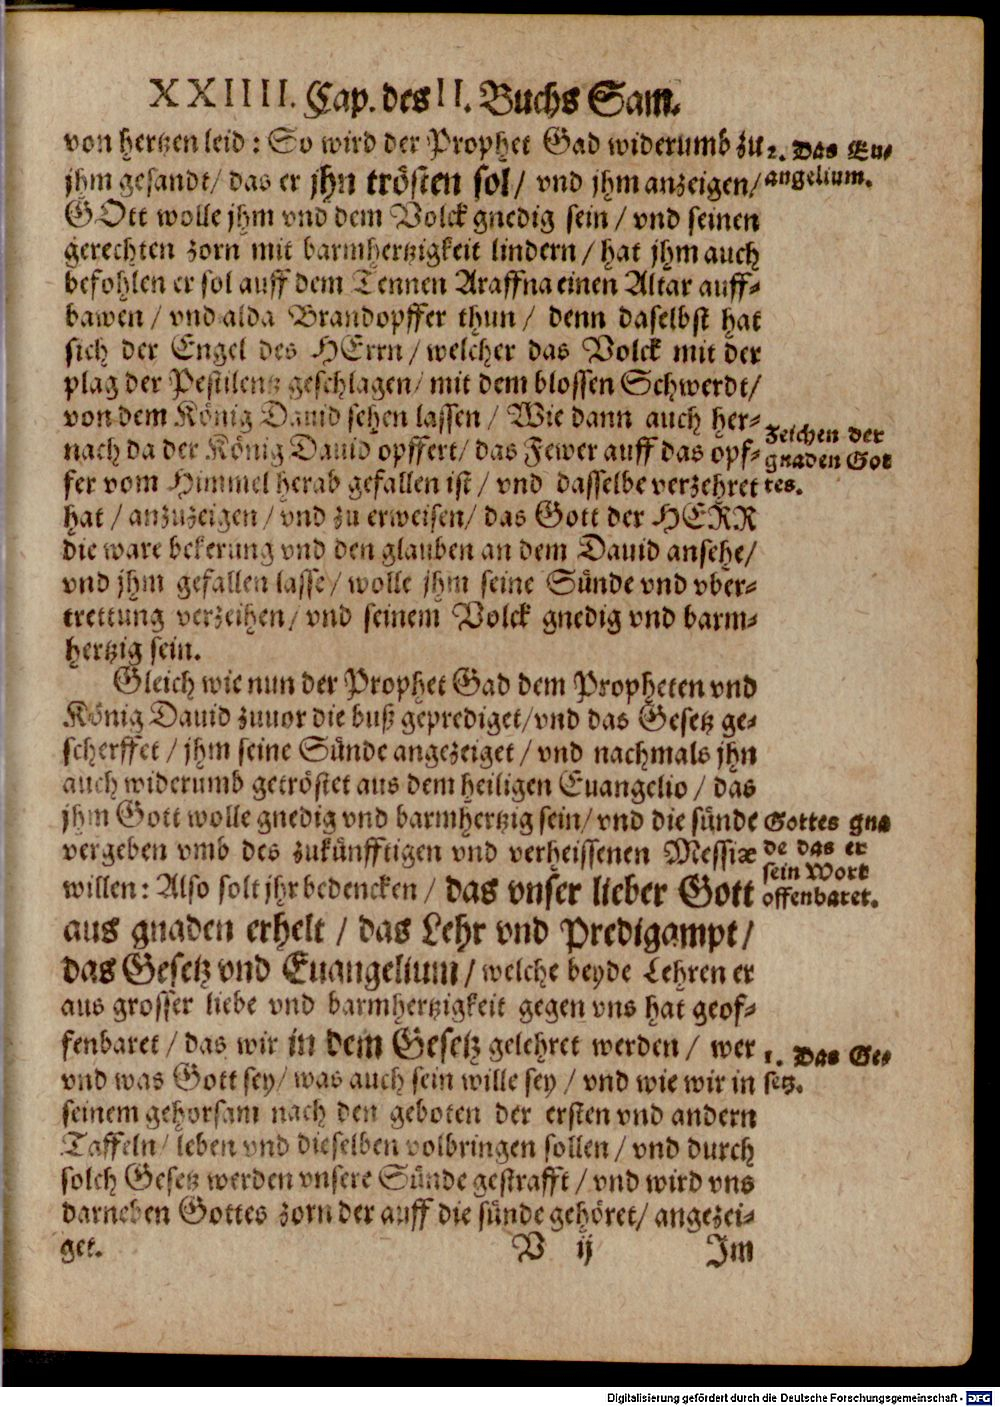 XXIIII. Cap. des II. Buchs Sam.
von hertzen leid: So wird der Prophet Gad widerumb zu
jhm gesandt/ das er jhn trösten sol/ vnd jhm anzeigen/
GOtt wolle jhm vnd dem Volck gnedig sein/ vnd seinen
gerechten zorn mit barmhertzigkeit lindern/ hat jhm auch
befohlen er sol auff dem Tennen Araffna einen Altar auff-
bawen/ vnd alda Brandopffer thun/ denn daselbst hat
sich der Engel des HErrn/ welcher das Volck mit der
plag der Pestilentz geschlagen/ mit dem blossen Schwerdt/
von dem König Dauid sehen lassen/ Wie dann auch her-
nach da der König Dauid opffert/ das Fewer auff das opf-
fer vom Himmel herab gefallen ist/ vnd dasselbe verzehret
hat/ anzuzeigen/ vnd zu erweisen/ das Gott der HERR
die ware bekerung vnd den glauben an dem Dauid ansehe/
vnd jhm gefallen lasse/ wolle jhm seine Sünde vnd vber-
trettung verzeihen/ vnd seinem Volck gnedig vnd barm-
hertzig sein.
Gleich wie nun der Prophet Gad dem Propheten vnd
König Dauid zuuor die buß geprediget/ vnd das Gesetz ge-
scherffet/ jhm seine Sünde angezeiget/ vnd nachmals jhn
auch widerumb getröstet aus dem heiligen Euangelio/ das
jhm Gott wolle gnedig vnd barmhertzig sein/ vnd die sünde
vergeben vmb des zukünfftigen vnd verheissenen Messiæ
willen: Also solt jhr bedencken/ das vnser lieber Gott
aus gnaden erhelt/ das Lehr vnd Predigampt/
das Gesetz vnd Euangelium/ welche beyde Lehren er
aus grosser liebe vnd barmhertzigkeit gegen vns hat geof-
fenbaret/ das wir in dem Gesetz gelehret werden/ wer
vnd was Gott sey/ was auch sein wille sey/ vnd wie wir in
seinem gehorsam nach den geboten der ersten vnd andern
Taffeln/ leben vnd dieselben volbringen sollen/ vnd durch
solch Gesetz werden vnsere Sünde gestrafft/ vnd wird vns
darneben Gottes zorn der auff die sünde gehöret/ angezei-
get.
V ij
Im
2. Das Eu-
angelium.
Zeichen der
gnaden Got
tes.
Gottes gna
de das er
sein Wort
offenbaret.
1. Das Ge-
setz.
Digitalisierung gefördert durch die Deutsche Forschungsgemeinschaft - DFG